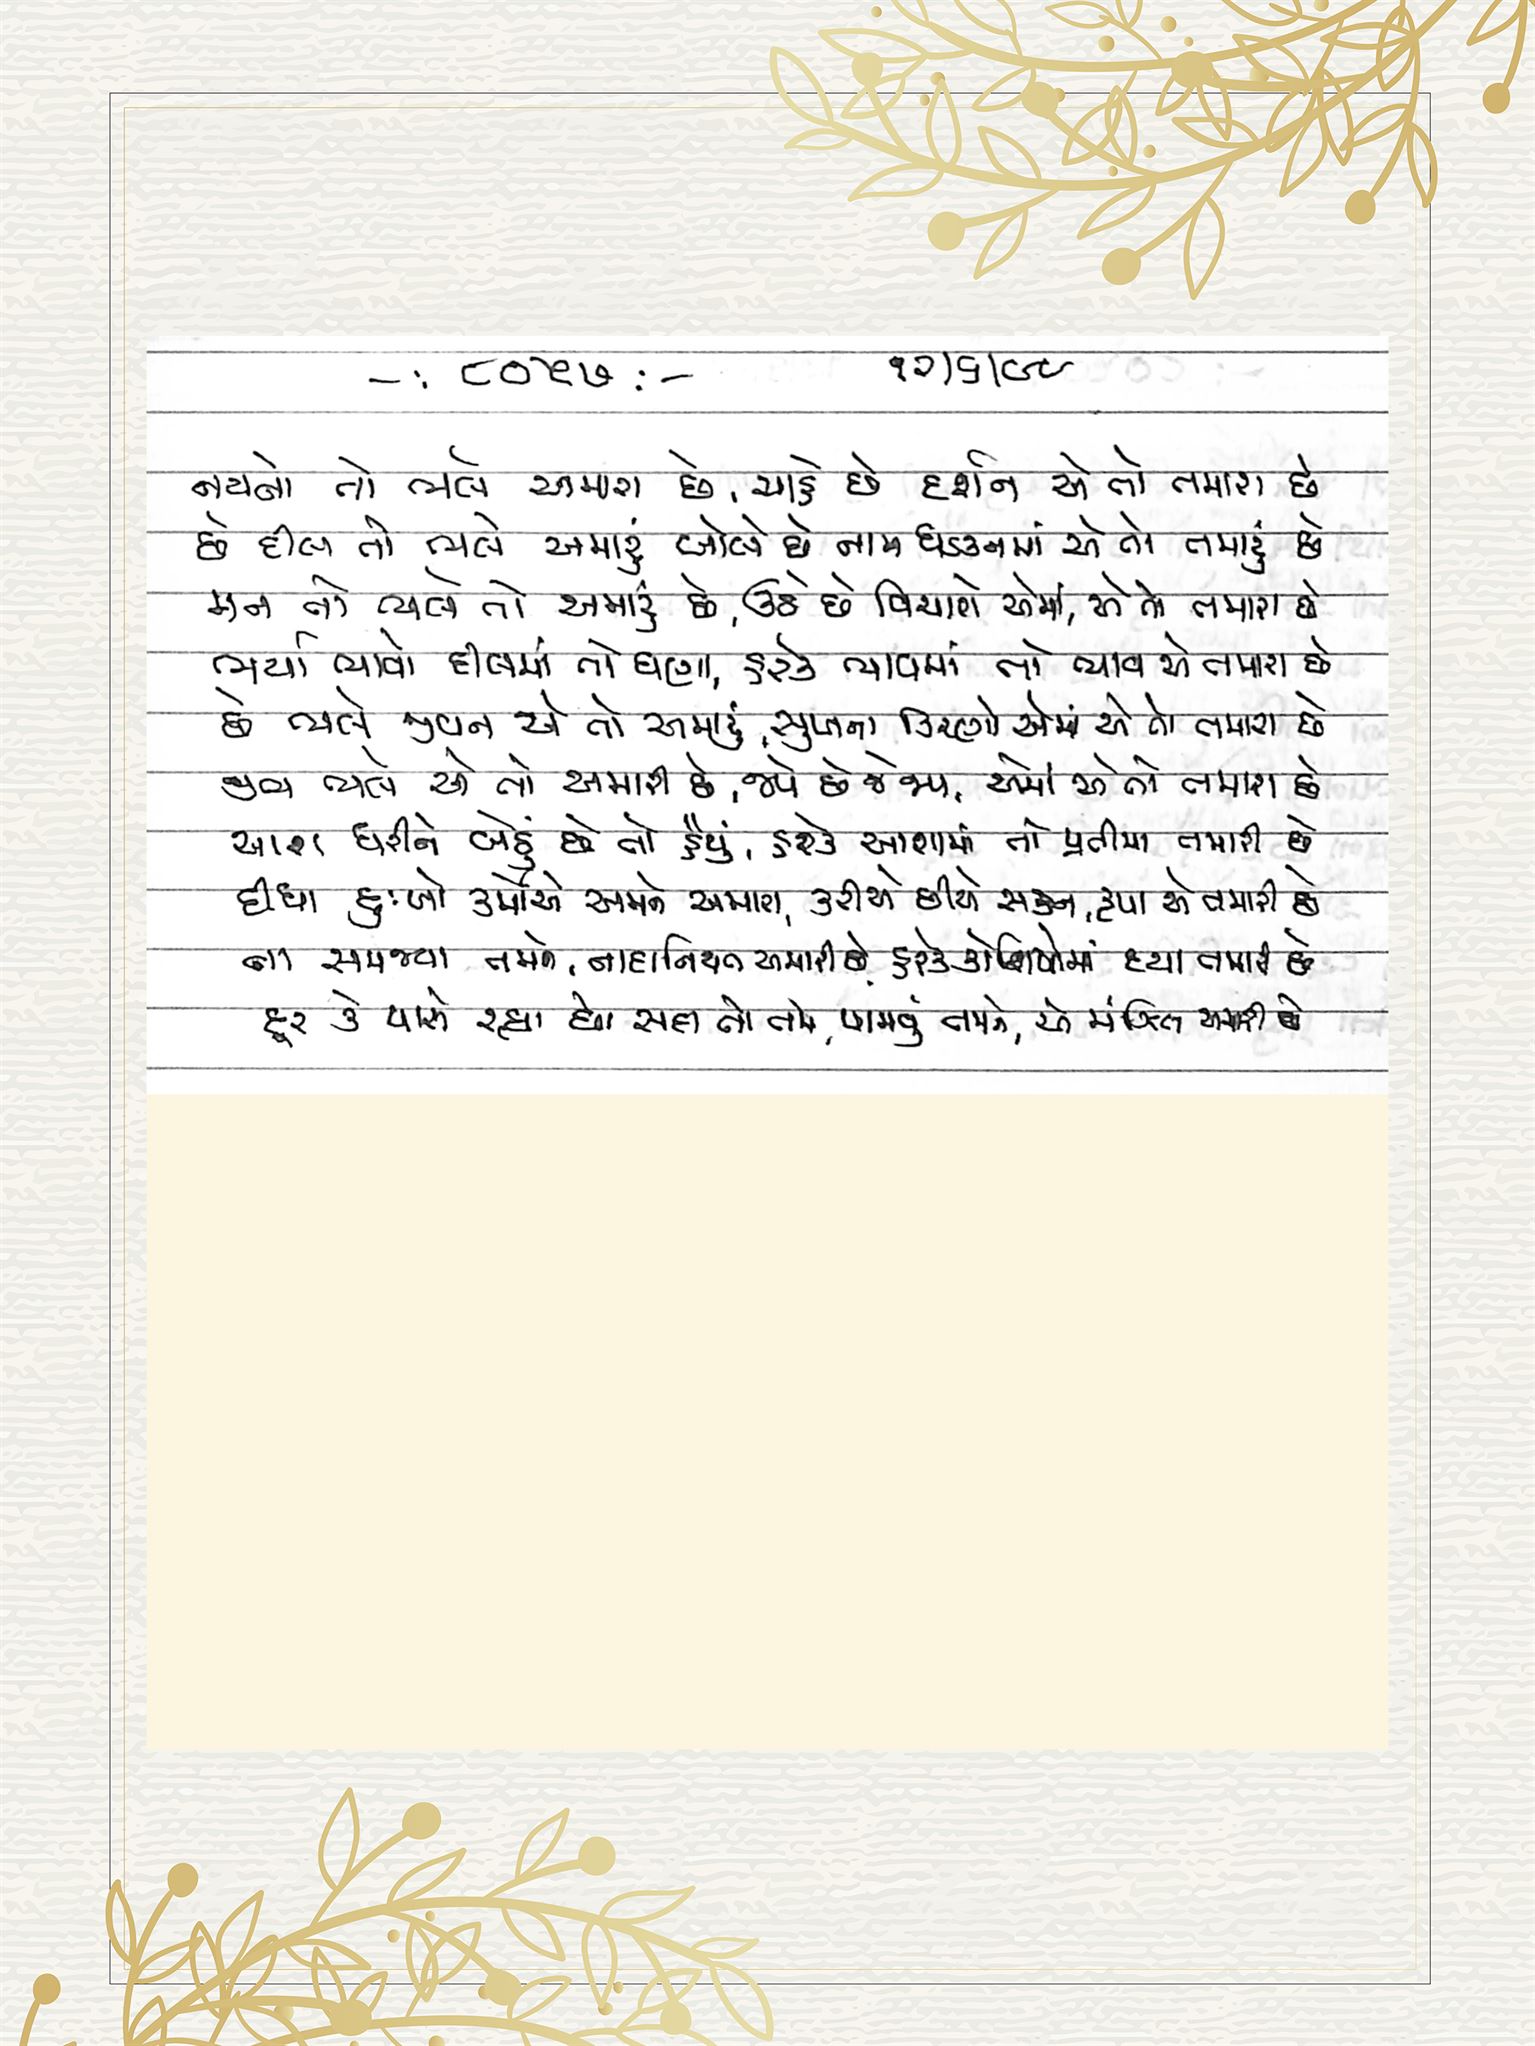 -: ૮૦૫૭ :- ૧૨/૬/૯૯
નયનો તો ભલે અમારા છે, ચાહે છે દર્શન એ તો તમારા છે
છે દીલ તો ભલે અમારું બોલે છે નામ ધડકનમાં એ તો તમારું છે
મન તો ભલે તો અમારું છે, ઉઠે છે વિચારો એમાં, એ તો તમારા છે
ભર્યા ભાવો દીલમાં તો ઘણા, હરેક ભાવમાં તો ભાવ એ તમારા છે
છે ભલે જીવન એ તો અમારું, સુખના કિરણો એમાં એ તો તમારા છે
જીભ ભલે એ તો અમારી છે, જપે છે જે જાપ, એમાં એ તો તમારા છે
આશ ધરીને બેઠું છે તો હૈયું, હરેક આશામાં તો પ્રતીમા તમારી છે
દીધા દુઃખો કર્મોએ અમને અમારા, કરીએ છીએ સહન, કૃપા એ તમારી છે
ના સમજ્યા તમને, નાદાનિયત અમારી છે, હરેક કોશિશોમાં દયા તમારી છે
દૂર કે પાસે રહ્યા છો સદા તો તમે, પામવું તમને, એ મંઝિલ અમારી છે